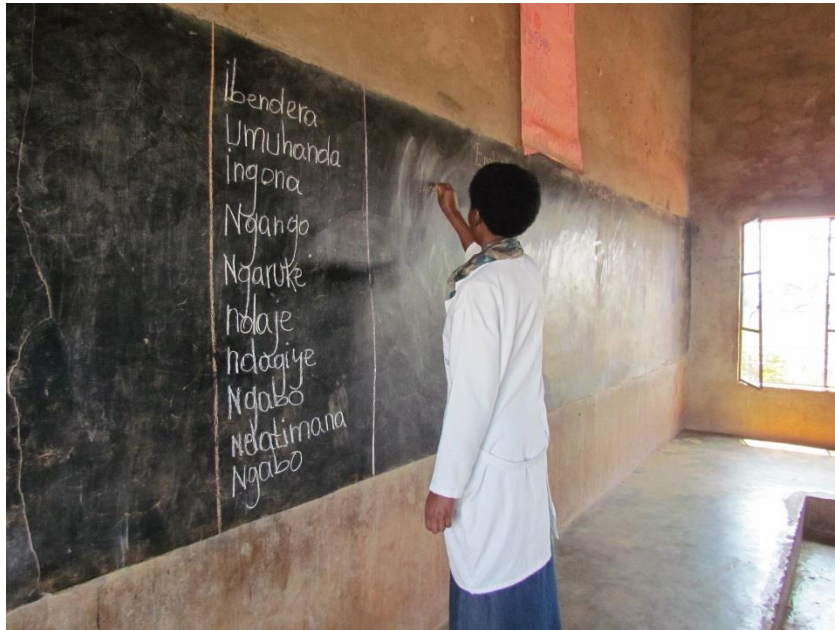 ibendera
Umuhanda
ingona
Ngango
Ngaruke
ndaje
ndagiye
Ngabo
Ndatimana
Ngabo